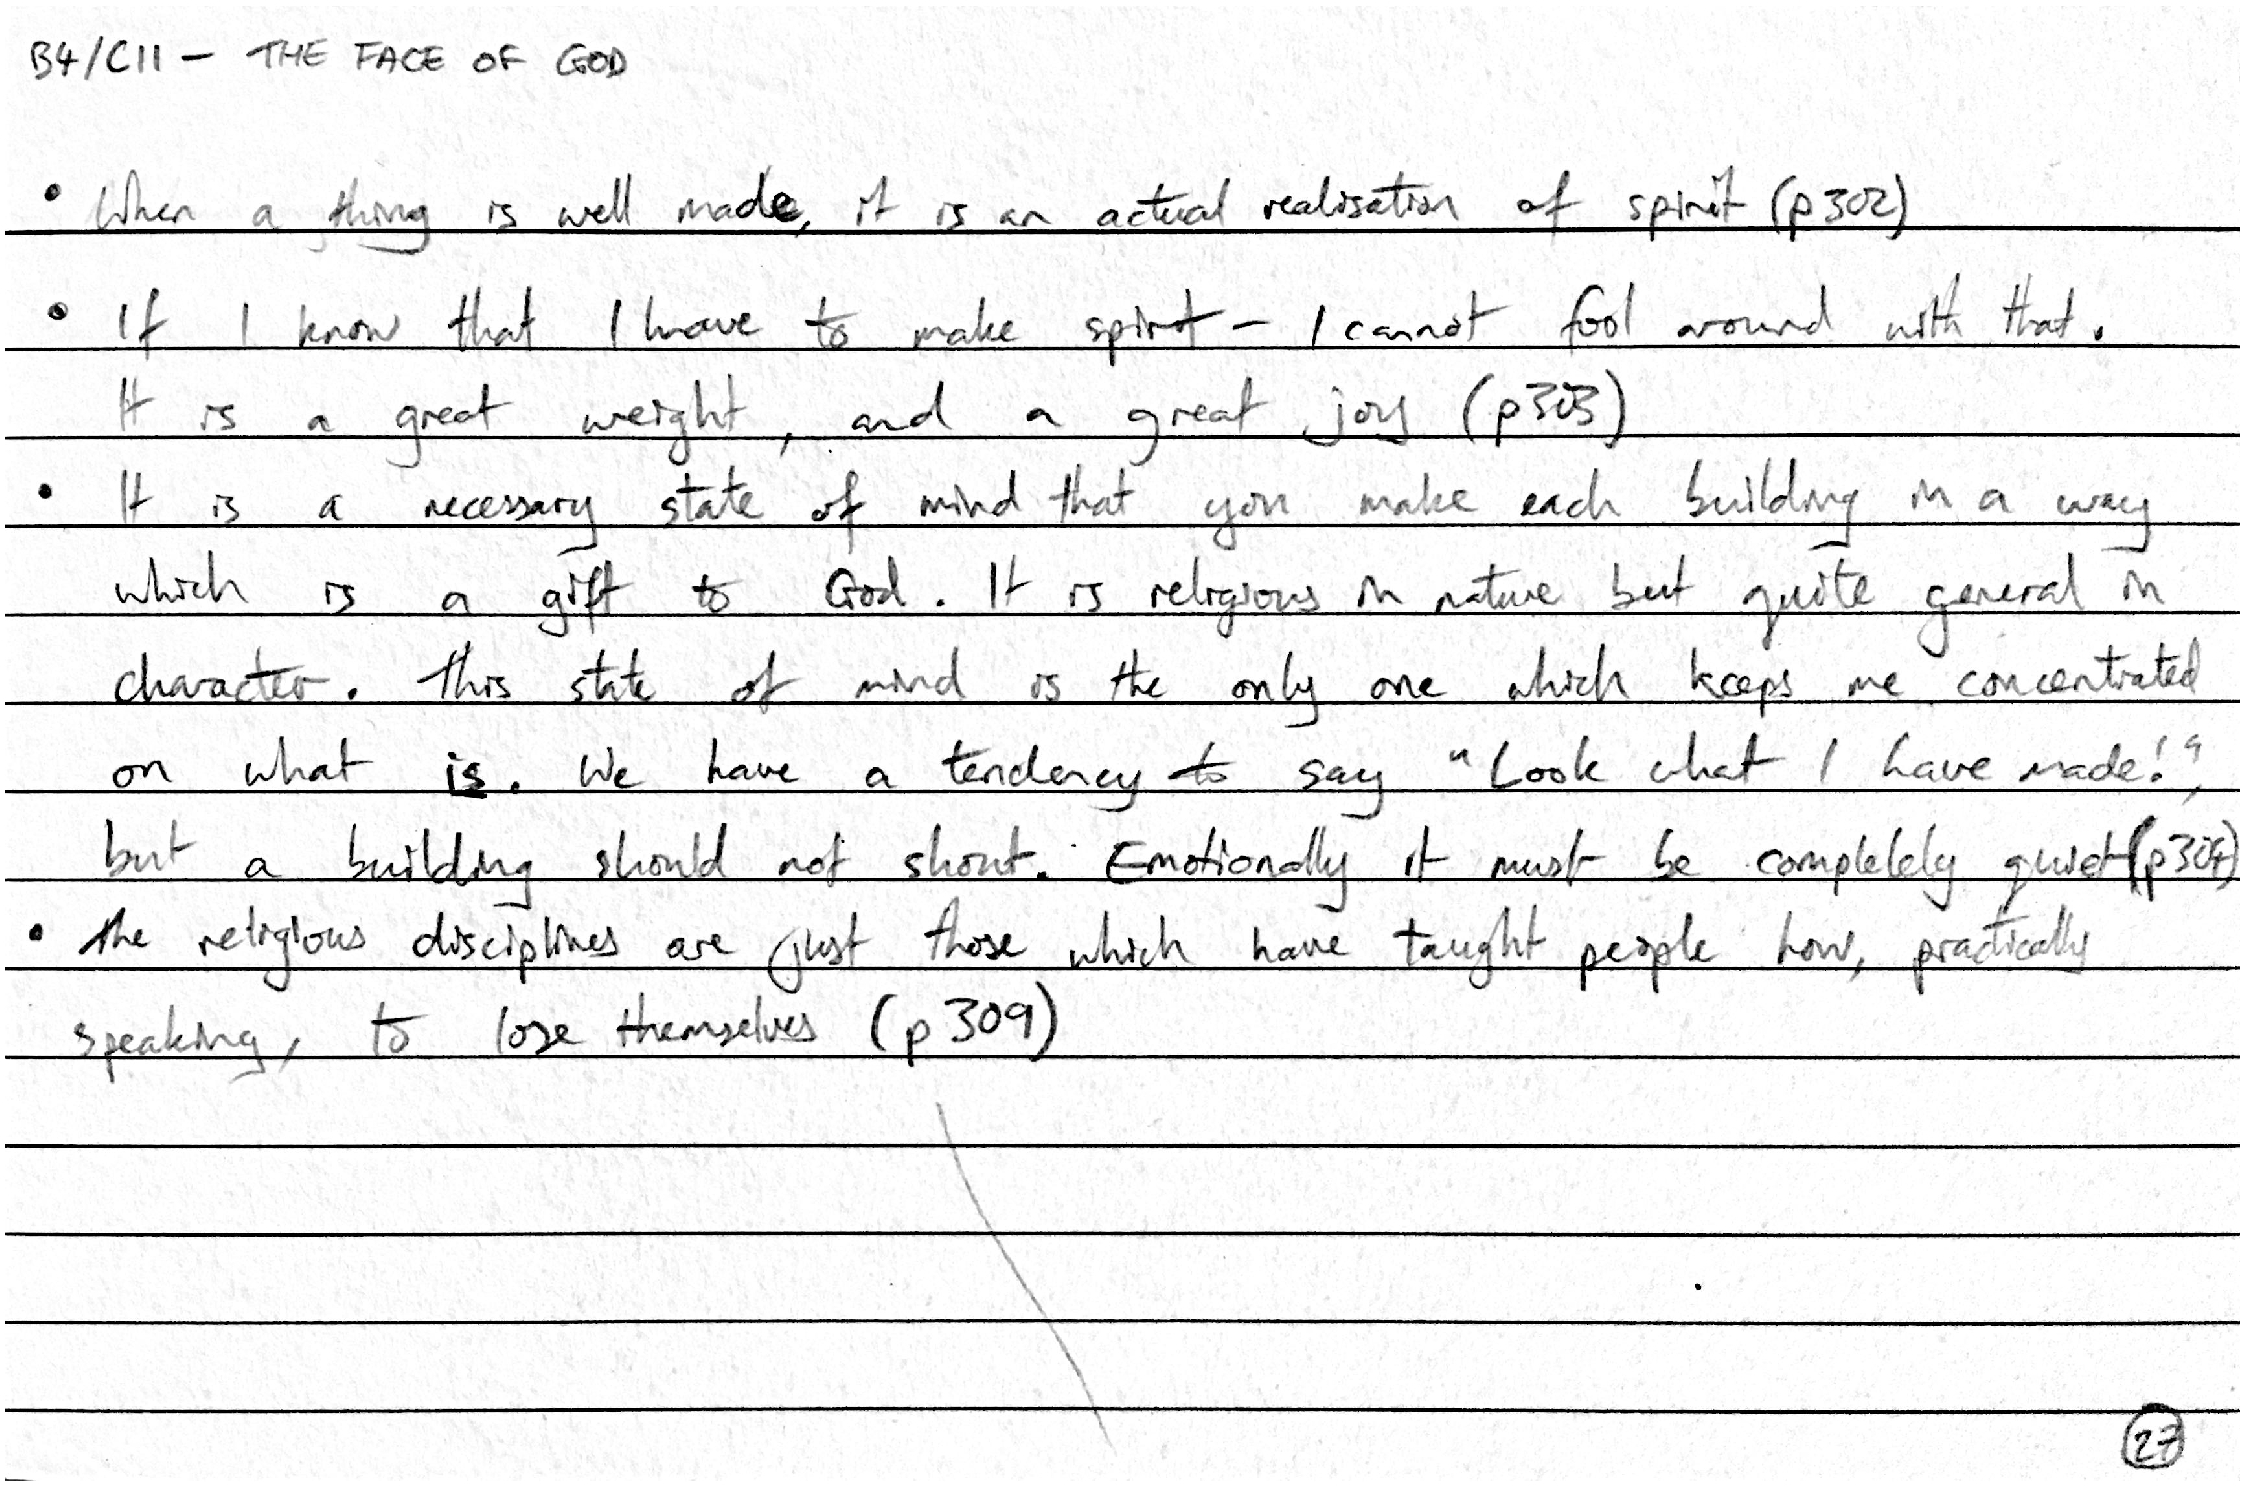 B4/C11 - THE FACE OF GOD
• When a thing is well made, it is an actual realisation of spirit (p302)
• If I know that I have to make spirit - I cannot fool around with that.
It is a great weight, and a great joy (p303)
• It is a necessary state of mind that you make each building in a way
which is a gift to God. It is religious in nature but quite general in
character. This state of mind is the only one which keeps me concentrated
on what is. We have a tendency to say "Look what I have made!",
but a building should not shout. Emotionally it must be completely quiet (p304)
• The religious disciplines are just those which have taught people how, practically
speaking, to lose themselves (p309)
27